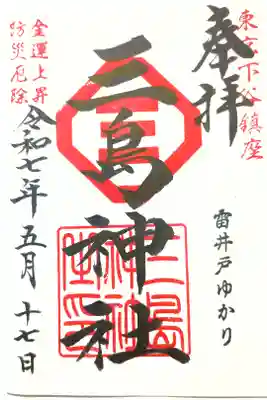 東京下谷鎮座
奉拝
三島神社
雷井戸ゆかり
金運上昇
防災厄除
令和七年五月十七日